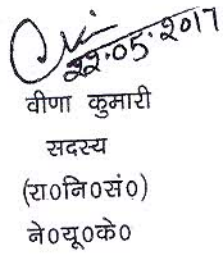 22.05.2017
वीणा कुमारी
सदस्य
(रा०नि०सं०)
ने०यू०के०